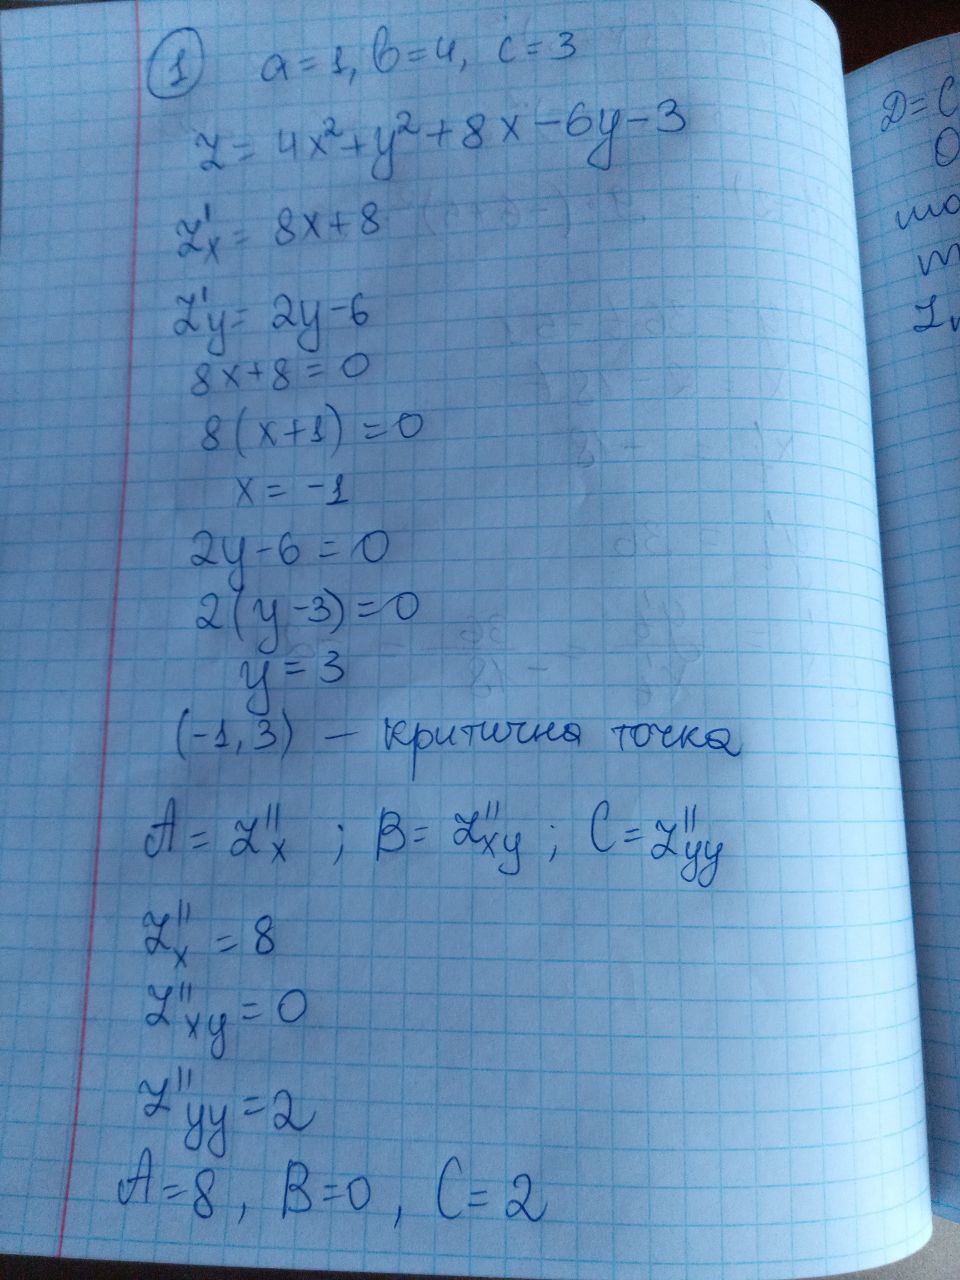 1 a=1, b=4, c=3
Z= 4x²+y²+8x-6y-3
Z'x= 8x+8
Z'y= 2y-6
8x+8=0
8(x+1)=0
x= -1
2y-6=0
2(y-3)=0
y=3
(-1,3) — критична точка
A= Z''x ; B= Z''xy ; C= Z''yy
Z''x = 8
Z''xy = 0
Z''yy = 2
A=8, B=0, C=2
D= C